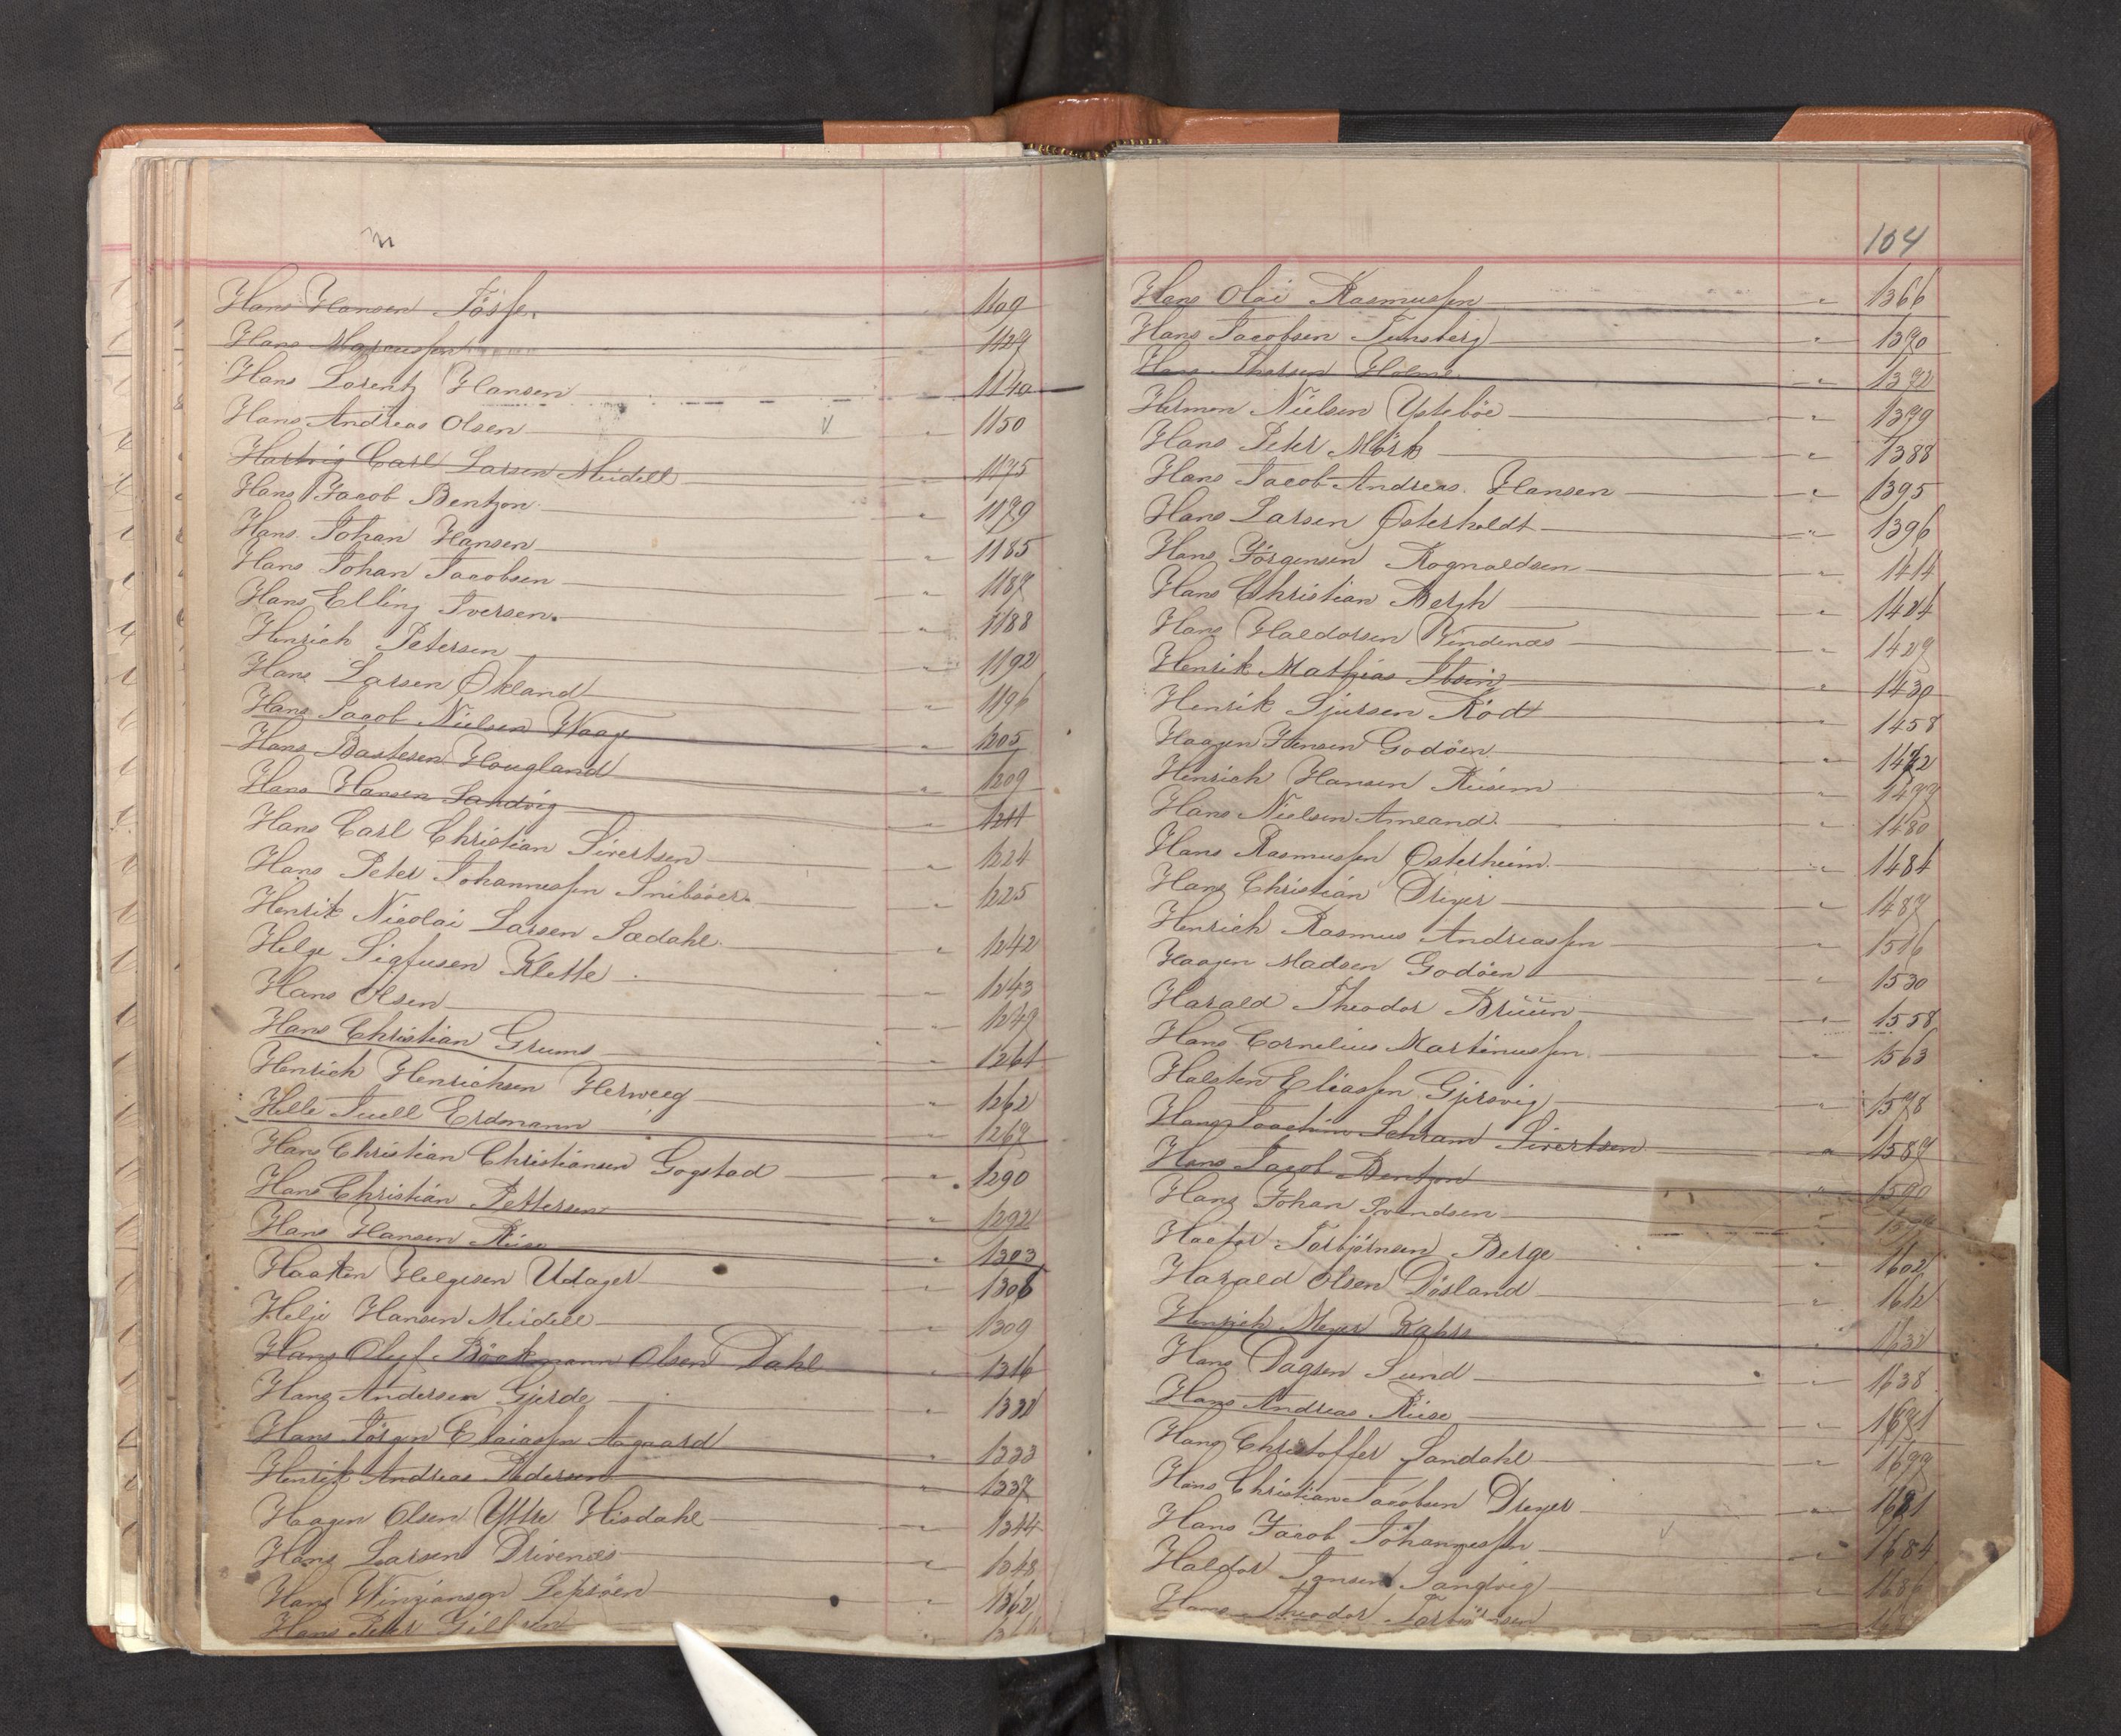 Hans Hansen 1109
Hans Marcussen 1129
Hans Lorentz Hansen 1140
Hans Andreas Olsen " 1150
Hartvig Carl Larsen Meidell 1175
Hans Jacob Bentzon " 1179
Hans Johan Hansen " 1185
Hans Johan Jacobsen " 1187
Hans Elling Iversen " 1188
Henrich Petersen " 1192
Hans Larsen Økland " 1196
Hans Jacob Nielsen Waage " 1205
Hans Bastesen Hougland " 1209
Hans Hansen Sandvig " 1211
Hans Carl Christian Sivertsen " 1224
Hans Peter Johannessen " 1225
Henrik Nicolai Larsen Sædahl " 1242
Helge Sigfusen Klette " 1243
Hans Olsen " 1249
Hans Christian Grums " 1261
Henrich Henrichsen Herweeg " 1262
Helle Juell Erdmann " 1267
Hans Christian Christiansen Gogstad " 1290
Hans Christian Pettersen " 1292
Hans Hansen Riise " 1303
Haaken Helgesen Udager " 1306
Helje Hansen Meidell " 1309
Hans Oluf Böckmann Olsen Dahl " 1316
Hans Andersen Gjerde "
Hans Jörgen Eliassen Aagaard " 1333
Henrik Andreas Pedersen " 1337
Haagen Olsen Yttre Hisdahl " 1344
Hans Larsen Drivenæs " 1348
Hans " 1362
Hans Peter
104
Hans Olai Rasmussen " 1366
Hans Jacobsen Tunsberg " 1370
Hans Thorsen Holme " 1372
Helmen Nielsen Ystebøe " 1379
Hans Peter Mörk " 1388
Hans Jacob Andreas Hansen " 1395
Hans Larsen Østerholdt " 1396
Hans Jörgensen Rognaldsen " 1414
Hans Christian Bergh " 1424
Hans Haldorsen Vindenæs " 1429
Henrik Mathias Ibsen " 1430
Henrik Sjursen Röd " 1458
Haagen Jensen Godöen " 1472
Henrich Hansen " 1477
Hans Nielsen Amland " 1480
Hans Rasmussen Østerheim " 1484
Hans Christian Dreyer " 1487
Henrich Rasmus Andreassen " 1516
Haagen Madsen Godöen " 1530
Harald Theodor Brüün " 1558
Hans Cornelius Martinussen " 1563
Halsten Eliassen Gjersvig " 1578
Hans Joachim Schram Sivertsen " 1587
Hans Jacob Bentzon " 1590
Hans Johan Svendsen "
Hactor Torbjörnsen Berge " 1602
Harald Olsen Dösland " 1612
Henrich Meyer Kahrs " 1632
Hans Dagsen Sund " 1638
Hans Andreas Riise " 1671
Hans Christoffer Sandahl " 1677
Hans Christian Jacobsen Dreyer " 1681
Hans Jacob Johannessen " 1684
Haldor Jansen Sandvig " 1686
Hans Theodor Torbjörnsen